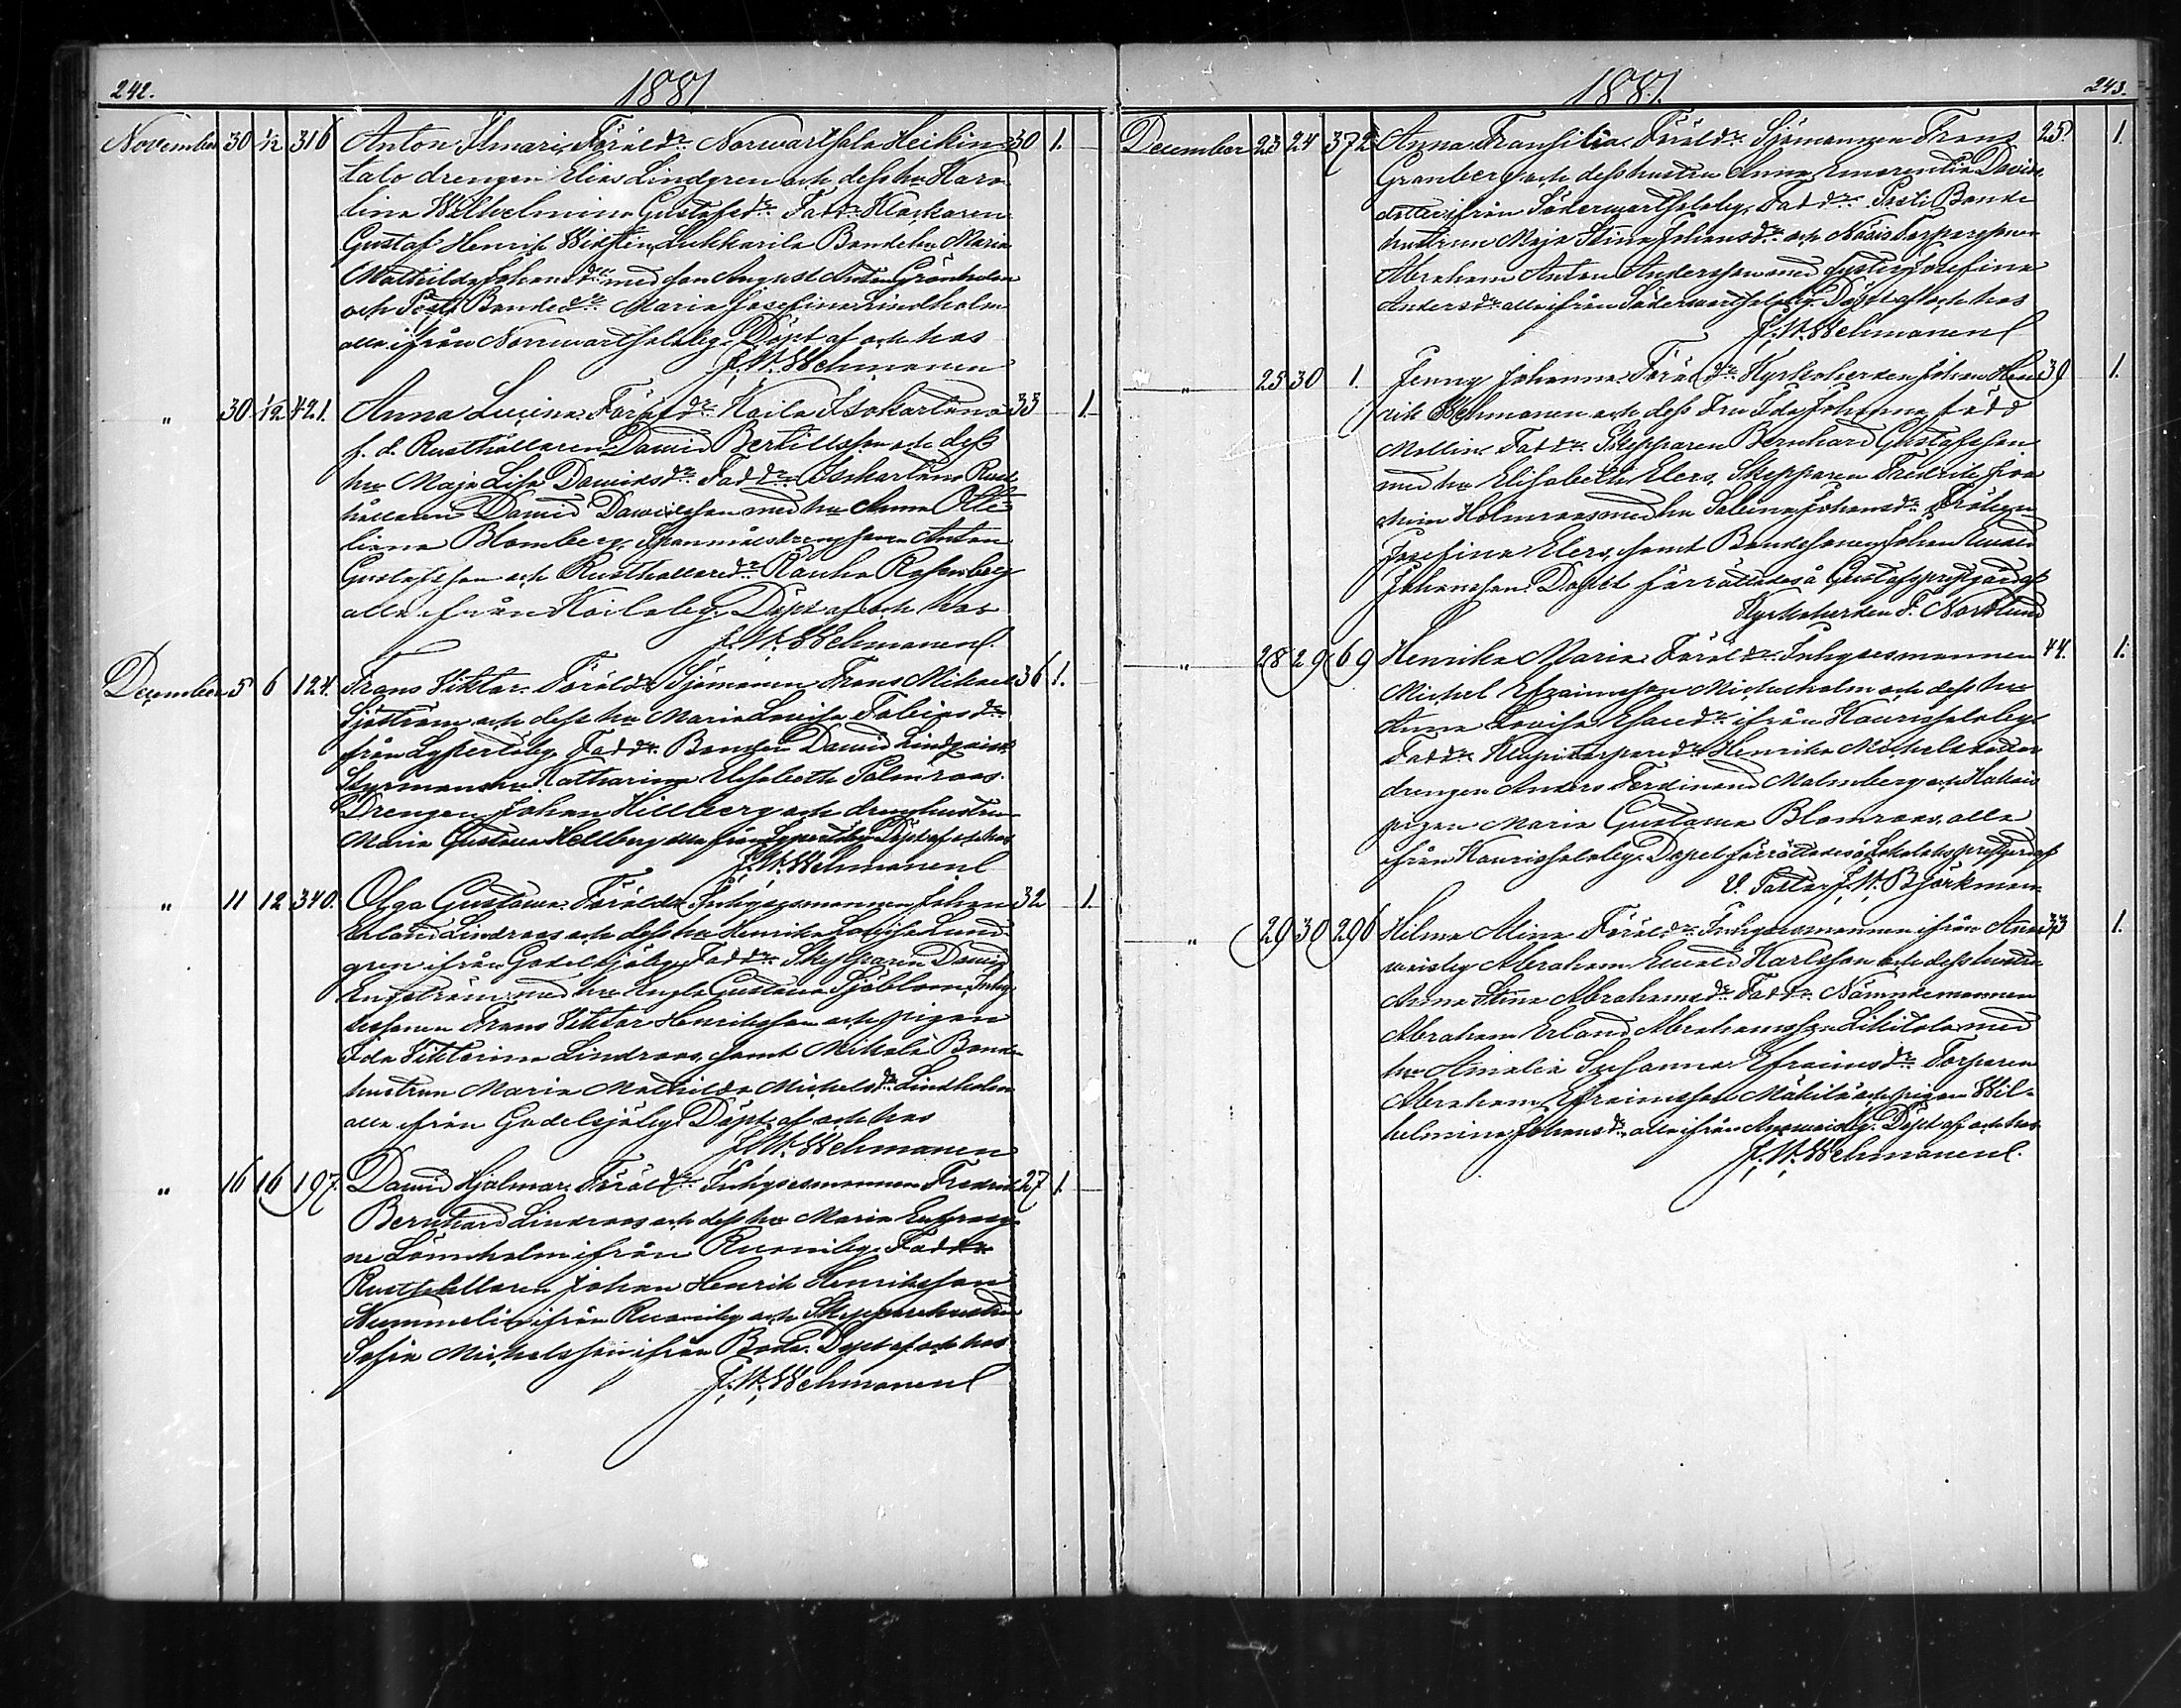 242.
1881
November 30 1/12 316 Anton Ilmari, Föräldr. Norrvartsala Heikin- 30 1.
talo drengen Elias Lindgren och dess hu Karo
lina Wilhelmina Gustafsdr. Faddr. Klockaren
Gustaf Henrik Lukkarila Bonde hu Maria
Mathilda Johansdr. med son August Anton Grönholm
och Posti Bondedr. Maria Josefina Lindholm
alla ifrån Norrvartsalaby. Döpt af och hos
J. W. Wehmanen
" 30 1/12 421. Anna Lucina. Föräldr. Kaila Isokartano 33 1.
f. d. Rusthållaren David Bertillsson och dess
hu Maja Lisa Davidsdr. Faddr. Isokartano Rust
hållaren David Davidsson med hu Anna Otte-
liana Blomberg, drengsonen Anton
Gustafsson och Rusthållaredr.
alla ifrån Kailaby. Döpt af och hos
J. W. Wehmanen.
December 5 6 124. Frans Viktor. Föräldr. Sjömannen Frans Mikael 36 1.
Sjöström och dess hu Maria Lovisa Tobiasdr.
från Lypertöby. Faddr. Bonden David Lindqvist
Styrmanshu Katharina Elisabeth Palmroos.
Drengen Johan Hillberg och drenghustrun
Maria Gustava Hellberg alla från Lypertöby Döpt af och hos
J. W. Wehmanen
" 11 12 340. Olga Gustava. Föräldr. Inhysesmannen Johan 32 1.
Erland Lindroos och dess hu Henrika Lovisa Lund
gren ifrån Godelsjöby. Faddr. Skepparen David
Engström med hu Gustava Sjöblom, Inhy-
sessonen Frans Viktor Henriksson och pigan
Ida Viktorina Lindroos, samt Mikola Bonde
hustrun Maria Mathilda Michelsdr. Lindholm
alla ifrån Godelsjöby. Döpt af och hos
J. W. Wehmanen
" 16 16 197. David Hjalmar. Föräldr. Inhysesmannen Fredrik 27 1.
Bernhard Lindroos och dess hu Maria Eufrosy-
ne Lönnholm ifrån Ruoniby. Faddr.
Rusthållaren Johan Henrik Henriksson
Nummelin ifrån Ruoniby och Skepparehustrun
Sofia Michelsson ifrån Döpt af och hos
J. W. Wehmanen
1881.
243.
December 23 24 372 Anna Fransilia. Föräldr. Sjömannen Frans 25. 1.
Granberg och dess hustru Anna Emerentia Davids
dotter ifrån Södervartsalaby. Faddr. Posti Bonde
hustrun Maja Stina Johansdr. och Torparesonen
Abraham Anton Andersson med syster Josefina
Andersdr. alla ifrån Södervartsalaby. Döpt af och hos
J. W. Wehmanen
" 25 30 1. Jenny Johanna. Föräldr. Kyrkoherden Johan Hen- 39 1.
rik Wehmanen och dess Fru Ida Johanna född
Mollin. Faddr. Skepparen Bernhard Gustafsson
med hu Elisabeth Elers, Skepparen Fredrik Joa
chim Holmroos med hu Selina Johansdr. Fröken
Josefina Elers, samt Bondesonen Johan Evald
Johansson. Dopet förrättades å Gustafs prestgård af
Kyrkoherden F. Nordlund
" 28 29 69 Henrika Maria. Föräldr. Inhysesmannen 44. 1.
Michel Efraimsson Michelsholm och dess hu
Anna Lovisa Esaiedr. ifrån Kaurissaloby
Faddr. Torparedr. Henrika
drengen Anders Ferdinand Malmberg och
pigan Maria Gustava Blomroos, alla
ifrån Kaurissaloby. Dopet förrättades å Iniö kaplansprestgård af
V. Pastor J. W. Björkman
" 29 30 296 Hilma Alina. Föräldr. Inhysesmannen ifrån Ana- 33 1.
vaisby Abraham Evald Karlsson och dess hustru
Anna Stina Abrahamsdr. Faddr. Nämndemannen
Abraham Erland Abrahamsson Likitalo med
hu Amalia Susanna Efraimsdr. Torparen
Abraham Efraimsson Mäkilä och pigan Wil-
helmina Johansdr. alla ifrån Anavaisby. Döpt af och hos
J. W. Wehmanen.